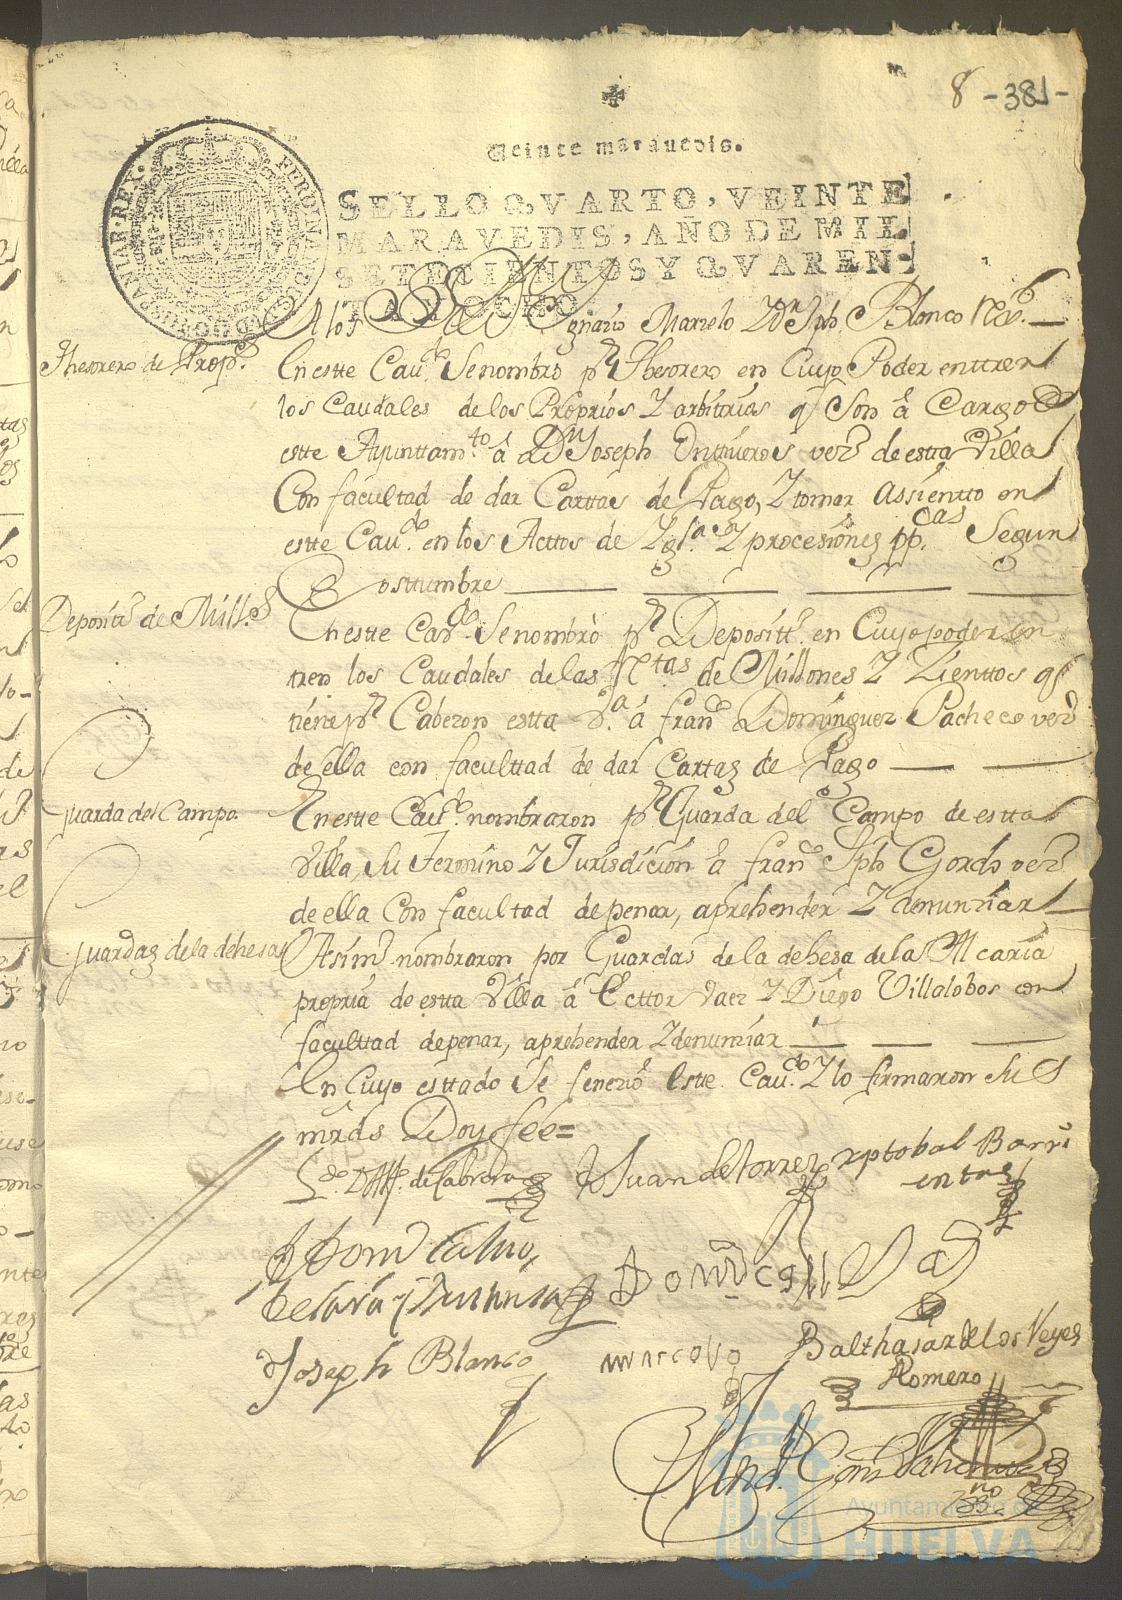 8 -381-
Veinte maravedis.
SELLO QVARTO, VEINTE
MARAVEDIS, AÑO DE MIL
SETECIENTOS Y QVAREN-
TA Y OCHO.
A los Ignazio Marzelo Y Dn Jph. Blanco
Thesorero de Propˢ.
En estte Cauᵈᵒ. Se nombro pʳ Thesorero en Cuyo Poder enttren
los Caudales de los Proprios Y arbitrias q Son â Cargo de
estte Ayunttamᵗᵒ. â Dⁿ Joseph vezº de estta Villa
Con facultad de dar Carttas de Pago, Y tomar Assientto en
estte Cauᵈᵒ. en los Acttos de Yglᵃ. Y procesiones ppᶜᵃˢ Segun
Costtumbre
Depositº de Millˢ
En estte Cauᵈᵒ. Se nombrò pʳ Deposittº. en Cuyo poder en
tren los Caudales de las Rᵗᵃˢ de Millones Y Zienttos q
tiene pʳ Cabezon estta Vᵃ. â Franᶜᵒ Dominguez Pacheco vezº
de ella con facultad de dar Cartas de Pago
Guarda del Campo.
En estte Cauᵈᵒ. nombraron pʳ Guarda del Campo de estta
Villa, Su Termino Y Jurisdicion â franᶜᵒ Jph Gordo vezº
de ella Con facultad de penar, aprehender Y denunziar
Guardas de la dehesa
Asimº nombraron por Guardas de la dehesa de la Alcaria
propria de estta Villa â Ecttor Vaez Y Diego Villalobos con
facultad de penar, aprehender Y denunziar
En Cuyo esttado Se fenezió Estte Cauᵈᵒ. Y lo firmaron Sus
mrds Doy fee=
Lᵈᵒ de Cabrera
Juan de torrez
xptobal Barri
entos
Domº Calvo,
de Lara y
Joseph Blanco
marcelo
Balthasar de los Reyes
Romero
Ayuntamiento de
HUELVA